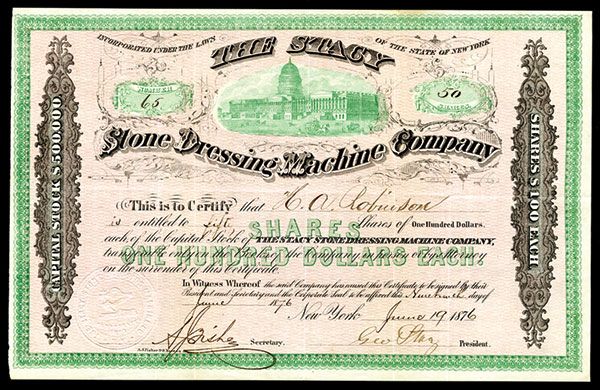 INCORPORATED UNDER THE LAWS OF THE STATE OF NEW YORK
THE STACY
NUMBER
65
50
SHARES
Stone Dressing Machine Company
CAPITAL STOCK $500,000
SHARES $100 EACH
This is to Certify that H. A. Robinson
is entitled to Shares of ONE HUNDRED DOLLARS.
SHARES
each, of the Capital Stock of THE STACY STONE DRESSING MACHINE COMPANY,
ONE HUNDRED DOLLARS EACH.
on the Books of the Company in person or by attorney
on the surrender of this Certificate.
In Witness Whereof the said Company has caused this Certificate to be signed by their
President and Secretary and the Corporate Seal to be affixed this Nineteenth day of
June 1876 New York June 19 1876
Secretary.
Geo Stacy President.